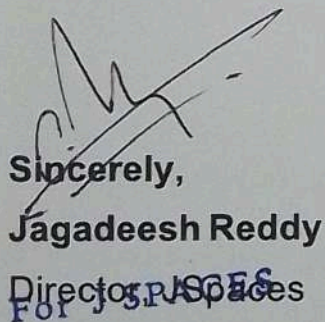 Sincerely,
Jagadeesh Reddy
Director, JSpaces
For J SPACES